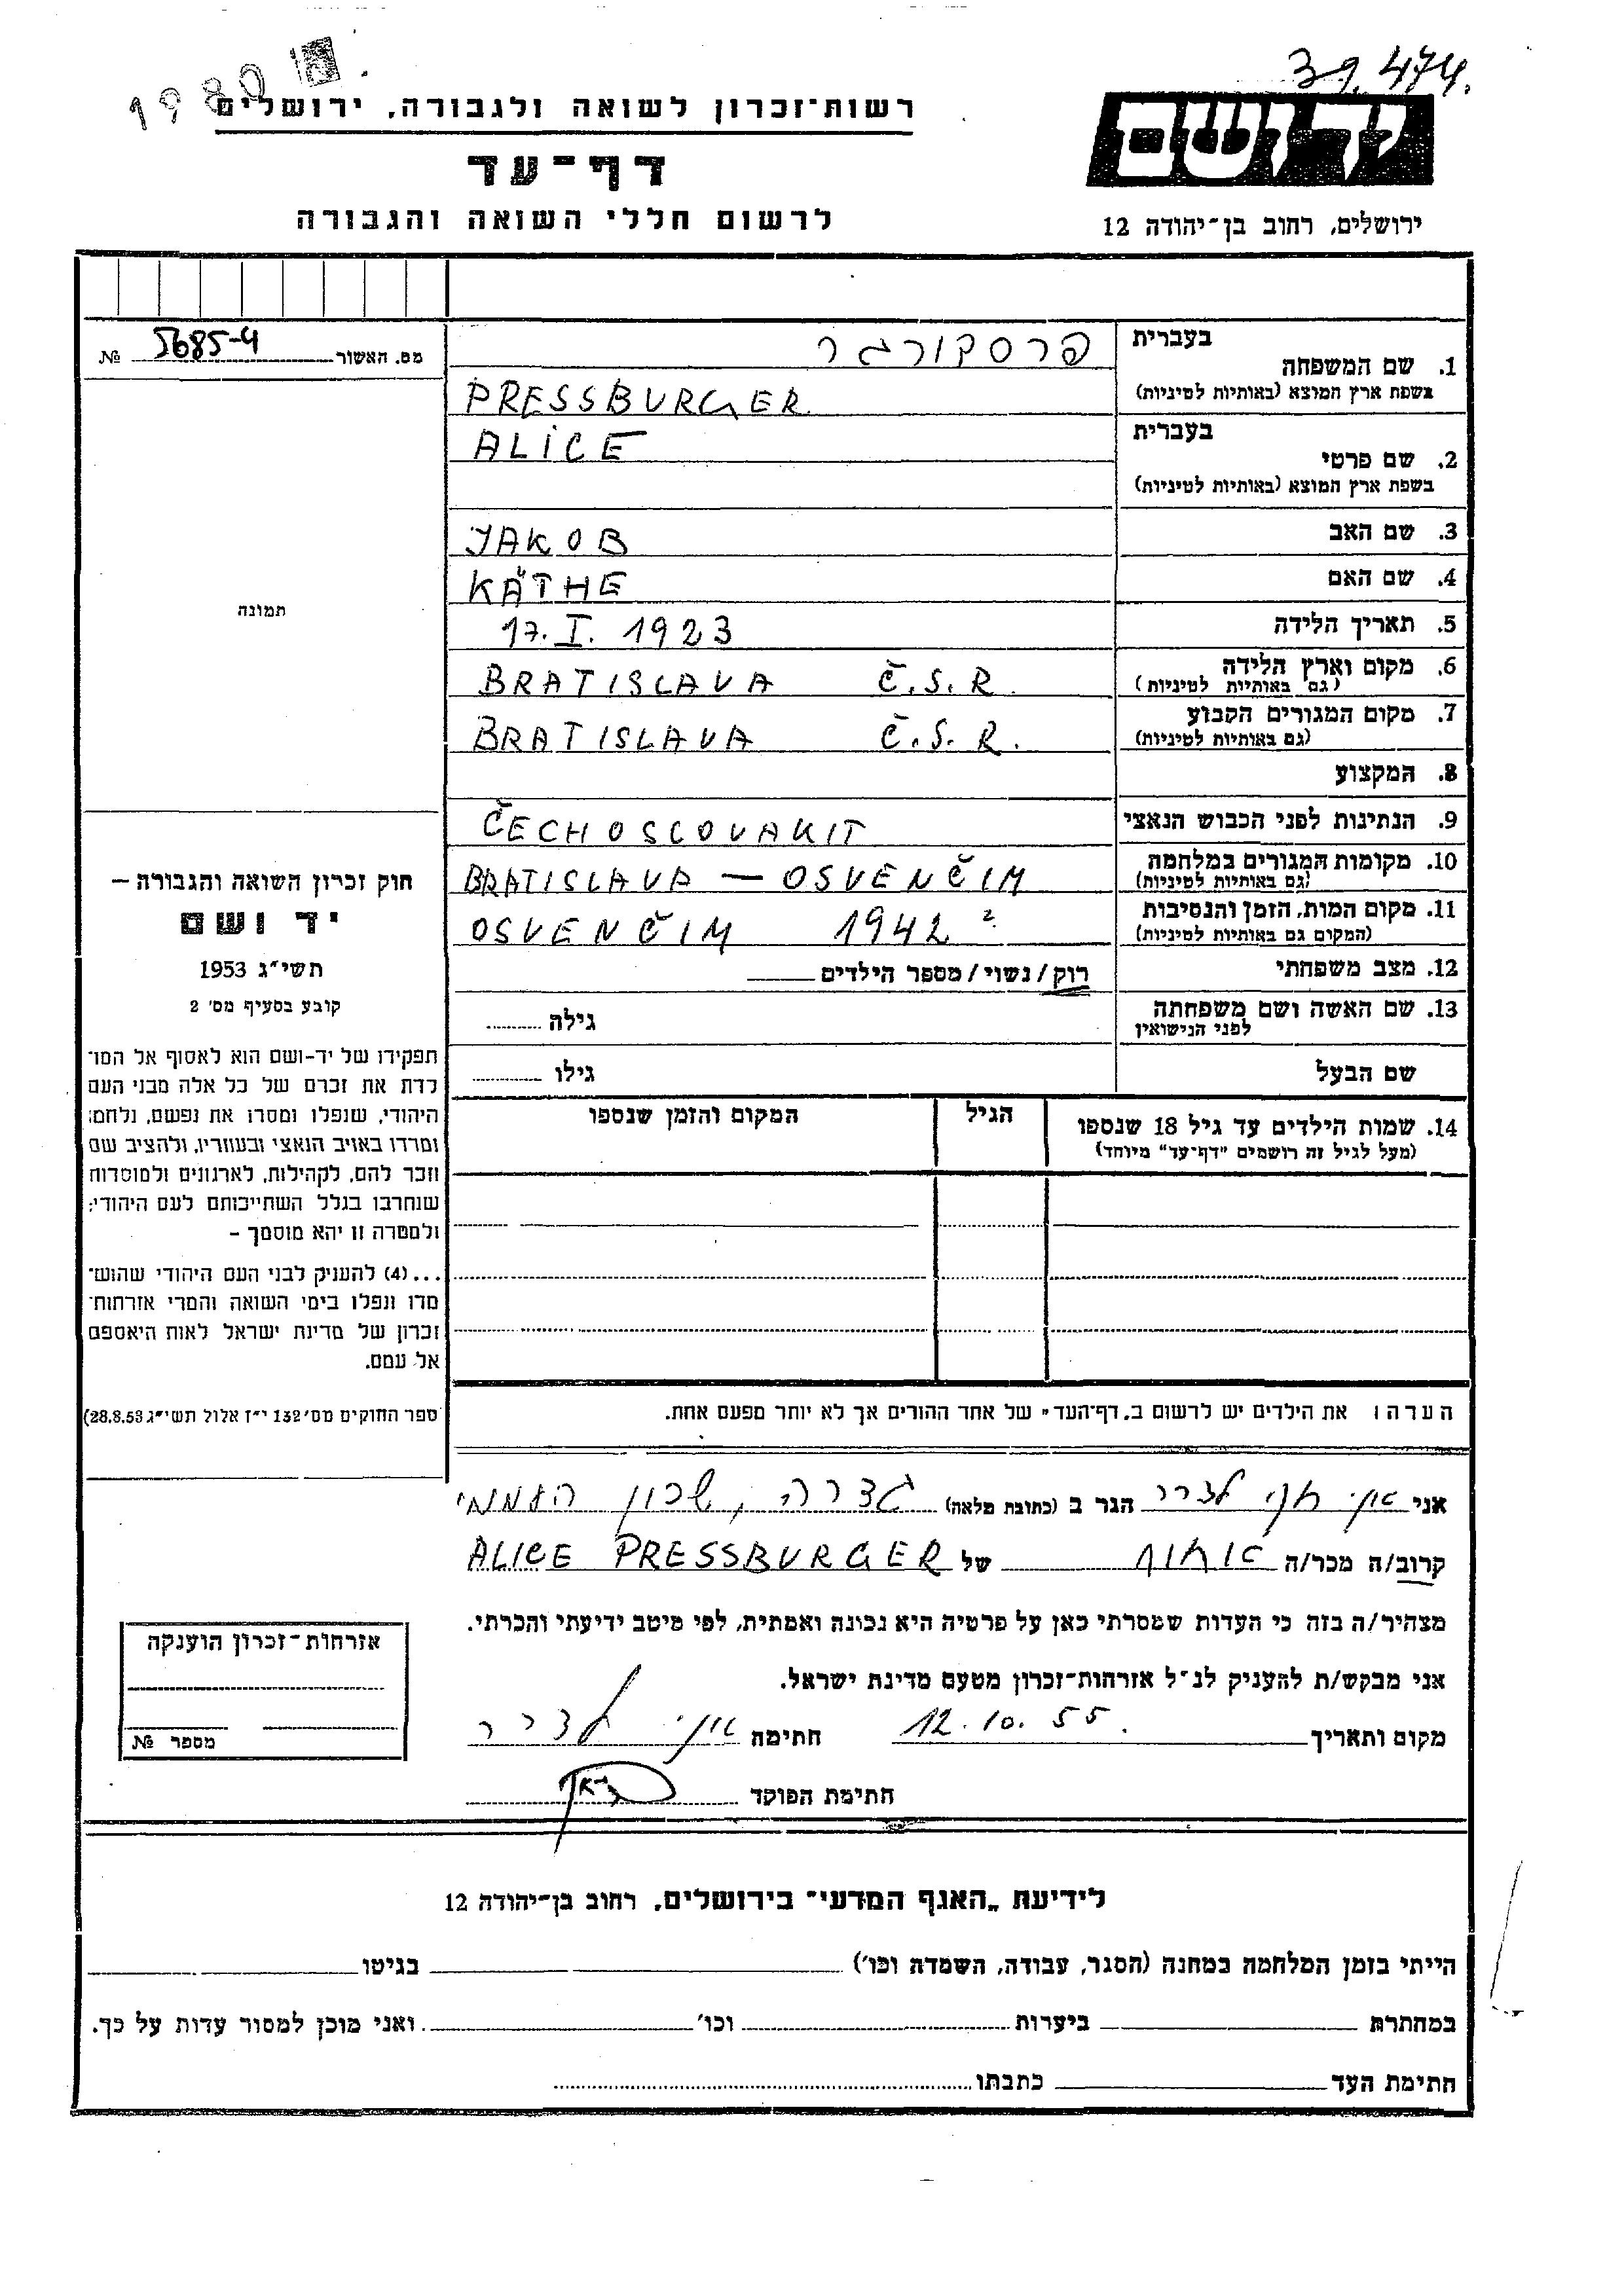 39.474.
1980
רשות־זכרון לשואה ולגבורה, ירושלים
יד ושם
דף־עד
לרשום חללי השואה והגבורה
ירושלים, רחוב בן־יהודה 12
מס. האשור 5685-4 №
בעברית
1. שם המשפחה
בשפת ארץ המוצא (באותיות לטיניות)
פרסבורגר
PRESSBURGER
בעברית
2. שם פרטי
בשפת ארץ המוצא (באותיות לטיניות)
ALICE
3. שם האב JAKOB
4. שם האם KÄTHE
5. תאריך הלידה 17. I. 1923
6. מקום וארץ הלידה
(גם באותיות לטיניות)
BRATISLAVA Č.S.R.
7. מקום המגורים הקבוע
(גם באותיות לטיניות)
BRATISLAVA Č.S.R.
8. המקצוע
9. הנתינות לפני הכבוש הנאצי ČECHOSCOVAKIT
10. מקומות המגורים במלחמה
(גם באותיות לטיניות)
BRATISLAVA — OSVENČIM
11. מקום המות, הזמן והנסיבות
(המקום גם באותיות לטיניות)
OSVENČIM 1942 ?
12. מצב משפחתי רוק/נשוי/מספר הילדים
13. שם האשה ושם משפחתה
לפני הנישואין
גילה
שם הבעל גילו
14. שמות הילדים עד גיל 18 שנספו
(מעל לגיל זה רושמים "דף־עד" מיוחד)
הגיל
המקום והזמן שנספו
תמונה
חוק זכרון השואה והגבורה —
יד ושם
תשי"ג 1953
קובע בסעיף מס' 2
תפקידו של יד-ושם הוא לאסוף אל המו־
לדת את זכרם של כל אלה מבני העם
היהודי, שנפלו ומסרו את נפשם, נלחמו
ומרדו באויב הנאצי ובעוזריו, ולהציב שם
וזכר להם, לקהילות, לארגונים ולמוסדות
שנחרבו בגלל השתייכותם לעם היהודי;
ולמטרה זו יהא מוסמך —
...(4) להעניק לבני העם היהודי שהוש־
מדו ונפלו בימי השואה והמרי אזרחות־
זכרון של מדינת ישראל לאות היאספם
אל עמם.
ספר החוקים מס' 132 י"ז אלול תשי"ג 28.8.53)
הערה: את הילדים יש לרשום ב„דף־העד" של אחד ההורים אך לא יותר מפעם אחת.
אני לדרר הגר ב (כתובת מלאה) גדרה, שכון העממי
קרוב/ה מכר/ה אחות של ALICE PRESSBURGER
מצהיר/ה בזה כי העדות שמסרתי כאן על פרטיה היא נכונה ואמתית, לפי מיטב ידיעתי והכרתי.
אני מבקש/ת להעניק לנ"ל אזרחות־זכרון מטעם מדינת ישראל.
מקום ותאריך 12.10.55. חתימה לדרר
חתימת הפוקד
אזרחות־זכרון הוענקה
מספר №
לידיעת „האגף המדעי" בירושלים, רחוב בן־יהודה 12
הייתי בזמן המלחמה במחנה (הסגר, עבודה, השמדה וכו') בגיטו
במחתרת ביערות וכו' ואני מוכן למסור עדות על כך.
חתימת העד כתבתו